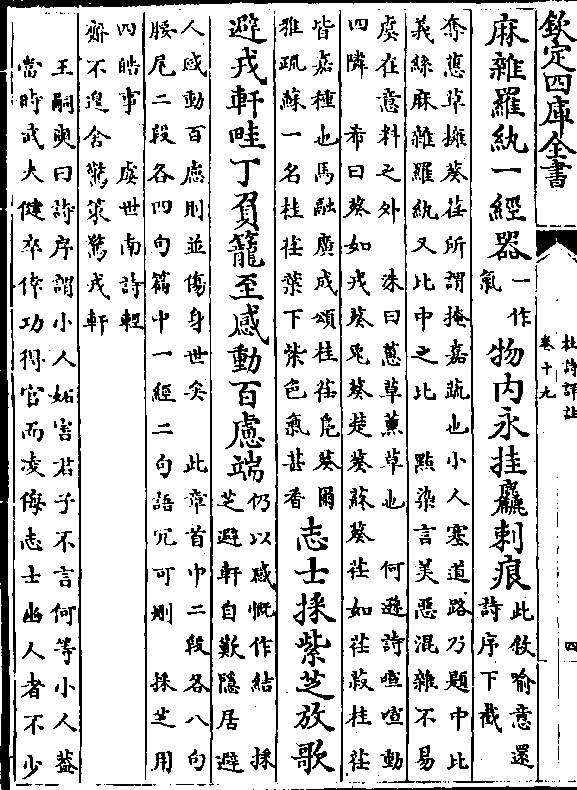 欽定四庫全書
杜詩詳註
卷十九
四
麻雜羅紈一經器一作氣物内永挂麤刺痕此敘喻意還詩序下截
奪蔥草擁葵荏所謂掩嘉蔬也小人塞道路乃題中比
義絲麻雜羅紈又比中之比 點染言美惡混雜不易
虞在意料之外 洙曰蔥草薰草也 何遜詩喧喧動
四隣 希曰葵如戎葵兎葵楚葵蘇葵荏如荏菽桂荏
皆嘉種也馬融廣成頌桂荏鳬葵爾
雅疏蘇一名桂荏葉下紫色氣甚香
志士採紫芝放歌
避戎軒畦丁負籠至感動百慮端仍以感慨作結 採芝避軒自歎隱居避
人感動百慮則並傷身世矣 此章首中二段各八句
腰尾二段各四句篇中一經二句語冗可刪 採芝用
四皓事 虞世南詩輕
齎不遑舍驚策騖戎軒
王嗣奭曰詩序謂小人妬害君子不言何等小人葢
當時武夫健卒倖功得官而凌侮志士幽人者不少